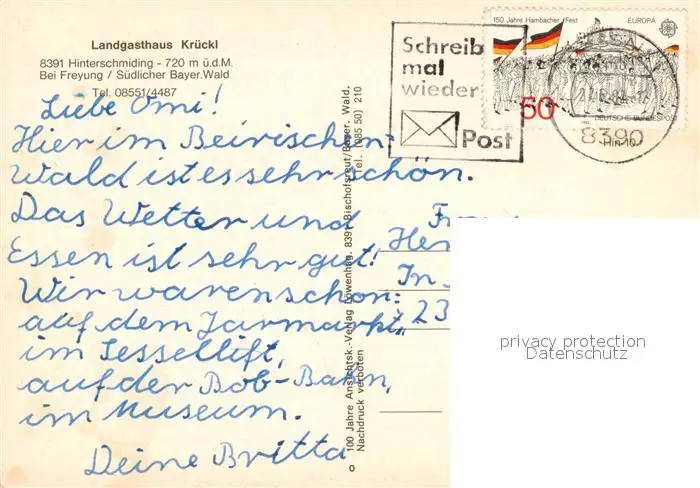 Landgasthaus Krückl
8391 Hinterschmiding - 720 m ü.d.M.
Bei Freyung / Südlicher Bayer.Wald
Tel. 08551/4487
Liebe Omi!
Hier im Beirischen-
wald ist es sehr schön.
Das Wetter und
Essen ist sehr gut!
Wir waren schon:
auf dem Jarmarkt,
im Sessellift,
auf der Bob-Bahn,
im Museum.
Deine Britta
100 Jahre Ansichtsk.-Verlag Löwenhag. 8391 Bischofsreut/Bayer. Wald.
Nachdruck verboten Tel. (085 50) 210
Schreib
mal
wieder
Post
150 Jahre Hambacher Fest EUROPA
50
DEUTSCHE BUNDESPOST
8390
Her
In
23
privacy protection
Datenschutz